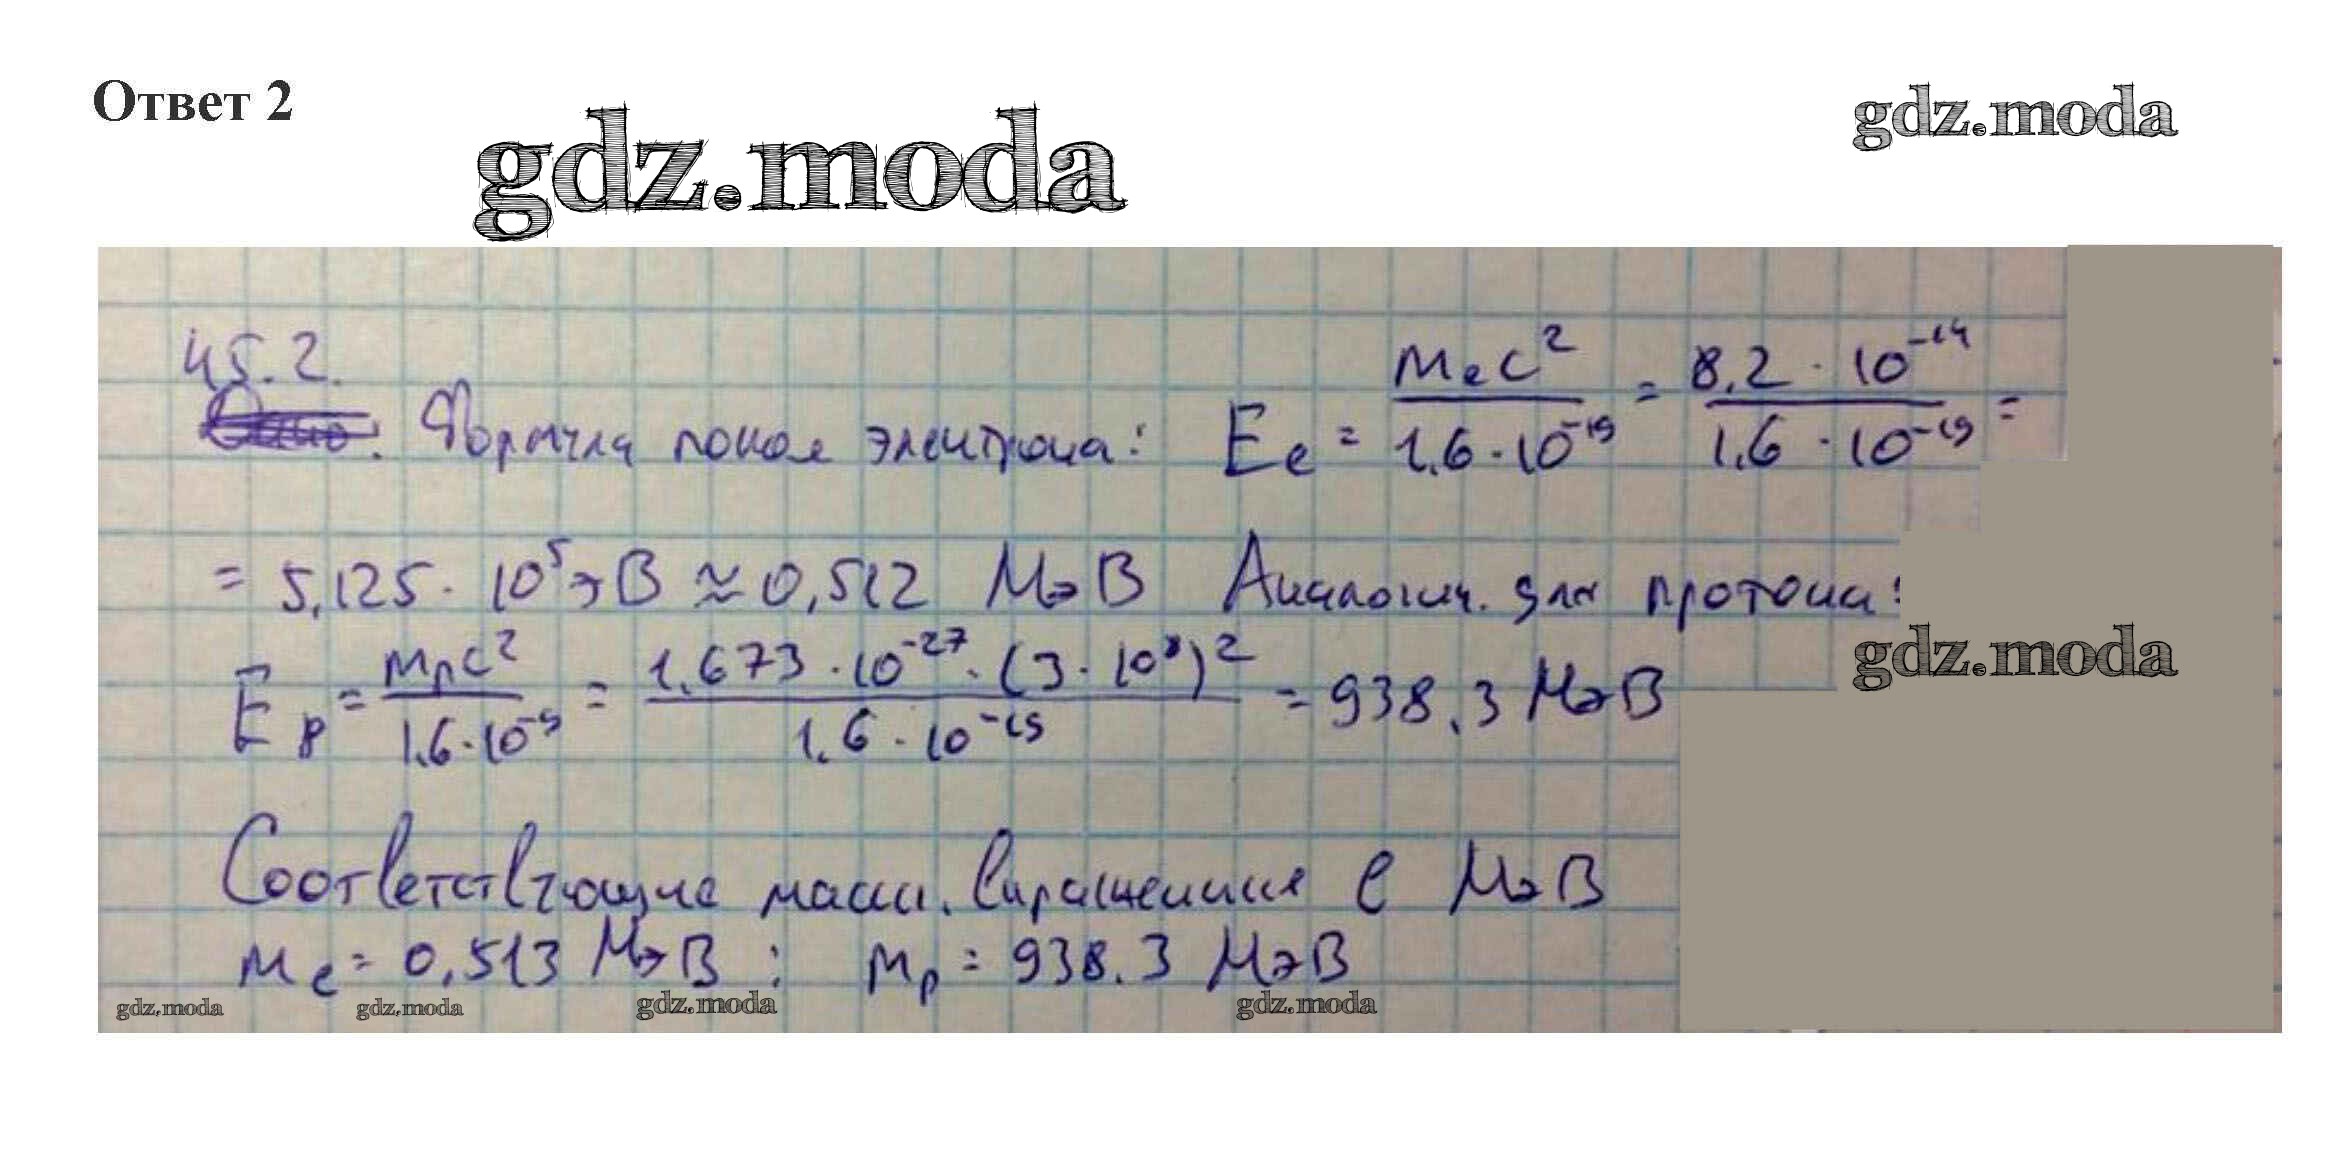 Ответ 2
gdz.moda
gdz.moda
45.2.
Формула покоя электрона: Eₑ = mₑc² / 1,6 · 10⁻¹⁹ = 8,2 · 10⁻¹⁴ / 1,6 · 10⁻¹⁹ =
= 5,125 · 10⁵ эВ ≈ 0,512 МэВ Аналогич. для протона:
gdz.moda
Eₚ = mₚc² / 1,6 · 10⁻⁹ = 1,673 · 10⁻²⁷ · (3 · 10⁸)² / 1,6 · 10⁻¹⁹ = 938,3 МэВ
Соответствующие массы, выраженные в МэВ
mₑ = 0,513 МэВ ; mₚ = 938,3 МэВ
gdz.moda gdz.moda gdz.moda gdz.moda